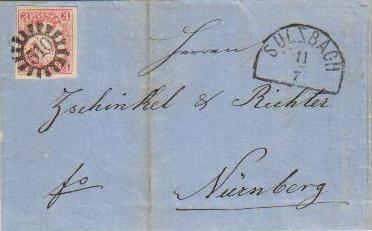 3 3
510
SULZBACH
11
7
Herren
Zschinkel & Richter
fo Nürnberg